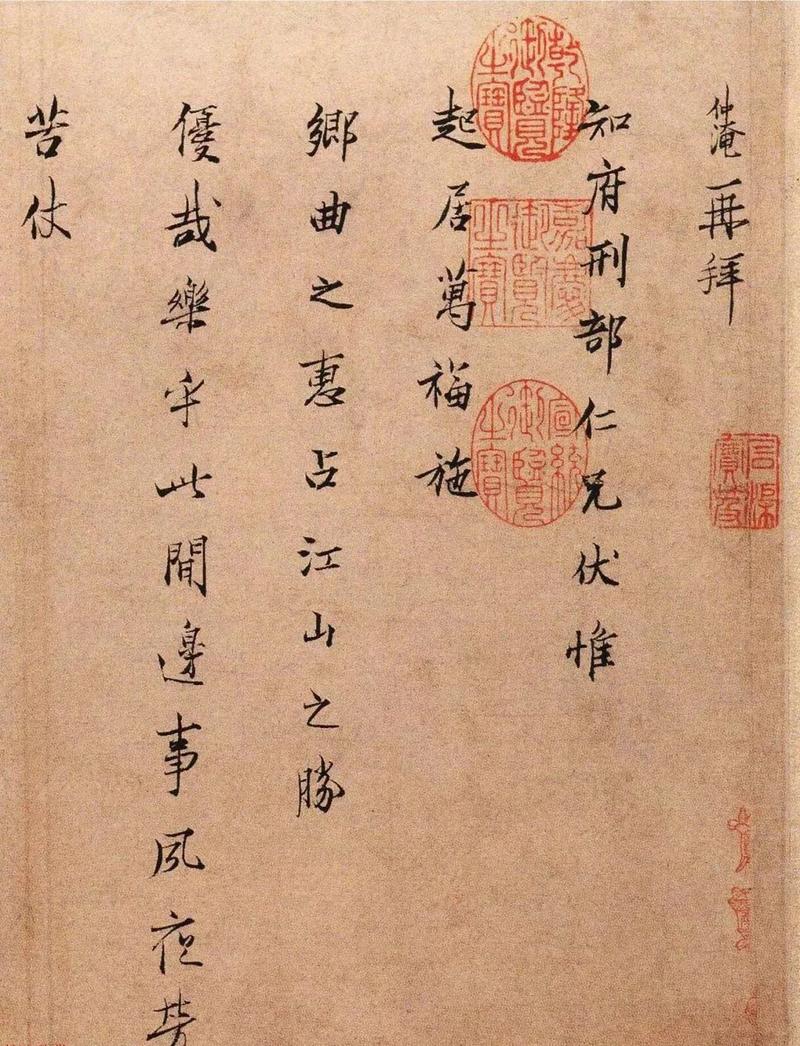 仲淹再拜
知府刑部仁兄伏惟
起居萬福施
鄉曲之惠占江山之勝
優哉樂乎此間邊事夙夜勞
苦仗
乾隆御覽之寶
嘉慶御覽之寶
宣統御覽之寶